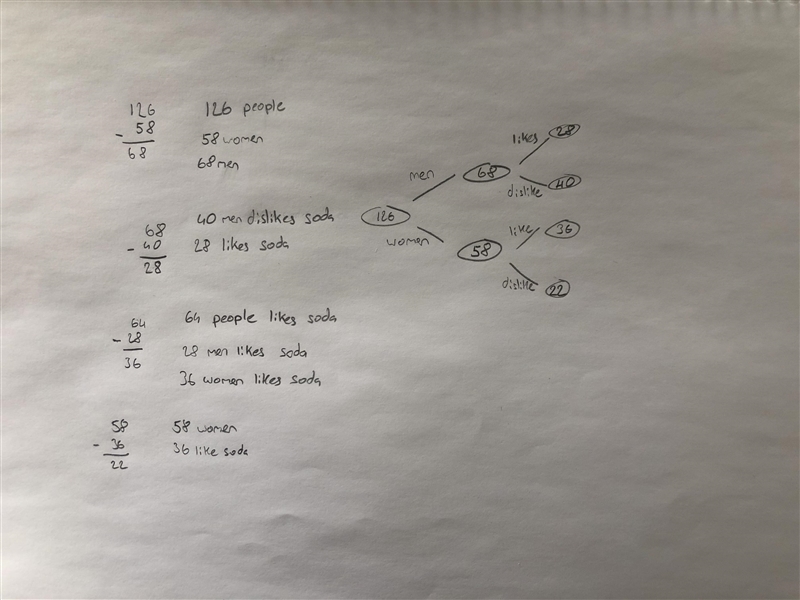 126 126 people
- 58 58 women
68 68 men
likes 28
men 68
dislike 40
126
like 36
women 58
dislike 22
68 40 men dislikes soda
- 40 28 likes soda
28
64 64 people likes soda
- 28 28 men likes soda
36 36 women likes soda
58 58 women
- 36 36 like soda
22